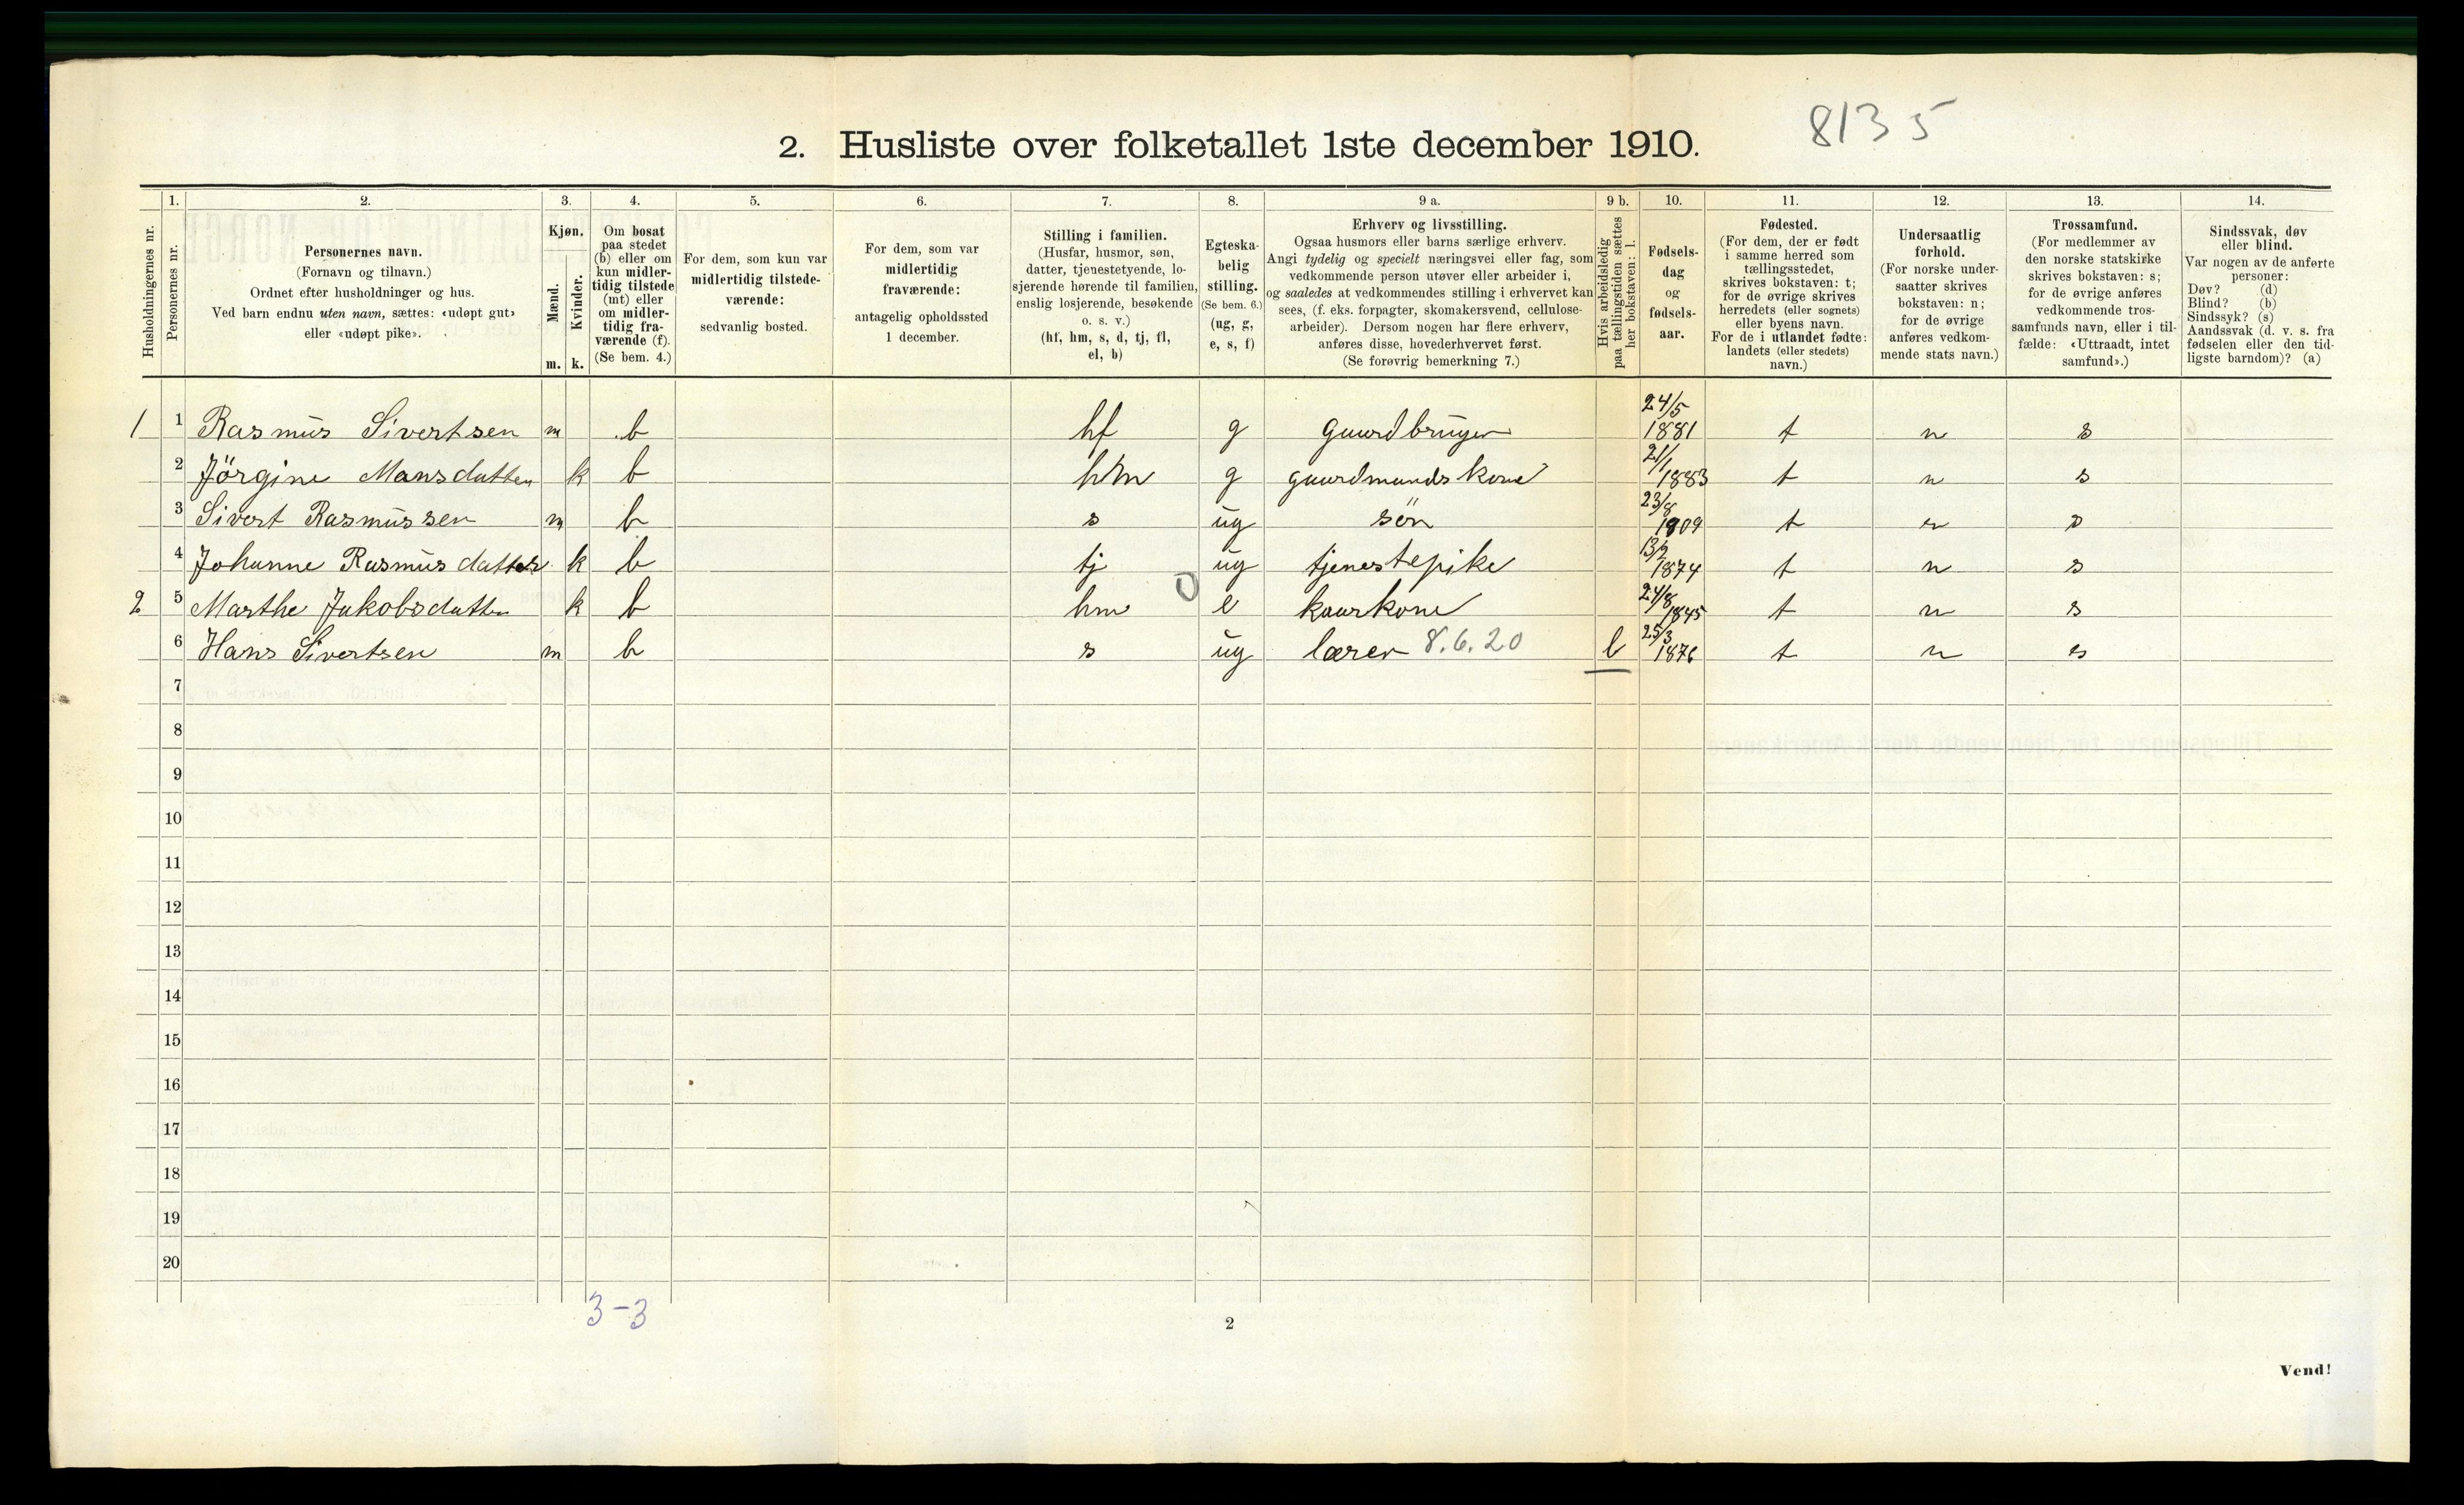 8135
2. Husliste over folketallet 1ste december 1910.
Husholdningernes nr.
1. Personernes nr.
2. Personernes navn.
(Fornavn og tilnavn.)
Ordnet efter husholdninger og hus.
Ved barn endnu uten navn, sættes: «udøpt gut»
eller «udøpt pike».
3. Kjøn.
Mænd. Kvinder.
m. k.
4. Om bosat
paa stedet
(b) eller om
kun midler-
tidig tilstede
(mt) eller
om midler-
tidig fra-
værende (f).
(Se bem. 4.)
5. For dem, som kun var
midlertidig tilstede-
værende:
sedvanlig bosted.
6. For dem, som var
midlertidig
fraværende:
antagelig opholdssted
1 december.
7. Stilling i familien.
(Husfar, husmor, søn,
datter, tjenestetyende, lo-
sjerende hørende til familien,
enslig losjerende, besøkende
o. s. v.)
(hf, hm, s, d, tj, fl,
el, b)
8. Egteska-
belig
stilling.
(Se bem. 6.)
(ug, g,
e, s, f)
9 a. Erhverv og livsstilling.
Ogsaa husmors eller barns særlige erhverv.
Angi tydelig og specielt næringsvei eller fag, som
vedkommende person utøver eller arbeider i,
og saaledes at vedkommendes stilling i erhvervet kan
sees, (f. eks. forpagter, skomakersvend, cellulose-
arbeider). Dersom nogen har flere erhverv,
anføres disse, hovederhvervet først.
(Se forøvrig bemerkning 7.)
9 b. Hvis arbeidsledig
paa tællingstiden sættes
her bokstaven: l.
10. Fødsels-
dag
og
fødsels-
aar.
11. Fødested.
(For dem, der er født
i samme herred som
tællingsstedet,
skrives bokstaven: t;
for de øvrige skrives
herredets (eller sognets)
eller byens navn.
For de i utlandet fødte:
landets (eller stedets)
navn.)
12. Undersaatlig
forhold.
(For norske under-
saatter skrives
bokstaven: n;
for de øvrige
anføres vedkom-
mende stats navn.)
13. Trossamfund.
(For medlemmer av
den norske statskirke
skrives bokstaven: s;
for de øvrige anføres
vedkommende tros-
samfunds navn, eller i til-
fælde: «Uttraadt, intet
samfund».)
14. Sindssvak, døv
eller blind.
Var nogen av de anførte
personer:
Døv? (d)
Blind? (b)
Sindssyk? (s)
Aandssvak (d. v. s. fra
fødselen eller den tid-
ligste barndom)? (a)
1 1 Rasmus Sivertsen m b hf g gaardbruger 24/5 1881 t n s
2 Jörgine Mansdatter k b hm g gaardmandskone 21/1 1883 t n s
3 Sivert Rasmussen m b s ug sön 23/8 1909 t n s
4 Johanne Rasmusdatter k b tj ug tjenestepike 13/2 1874 t n s
2 5 Marthe Jakobsdatter k b hm 0 e kaarkone 24/8 1845 t n s
6 Hans Sivertsen m b s ug lærer 8.6.20 l 25/3 1876 t n s
7
8
9
10
11
12
13
14
15
16
17
18
19
20
3-3
2
Vend!